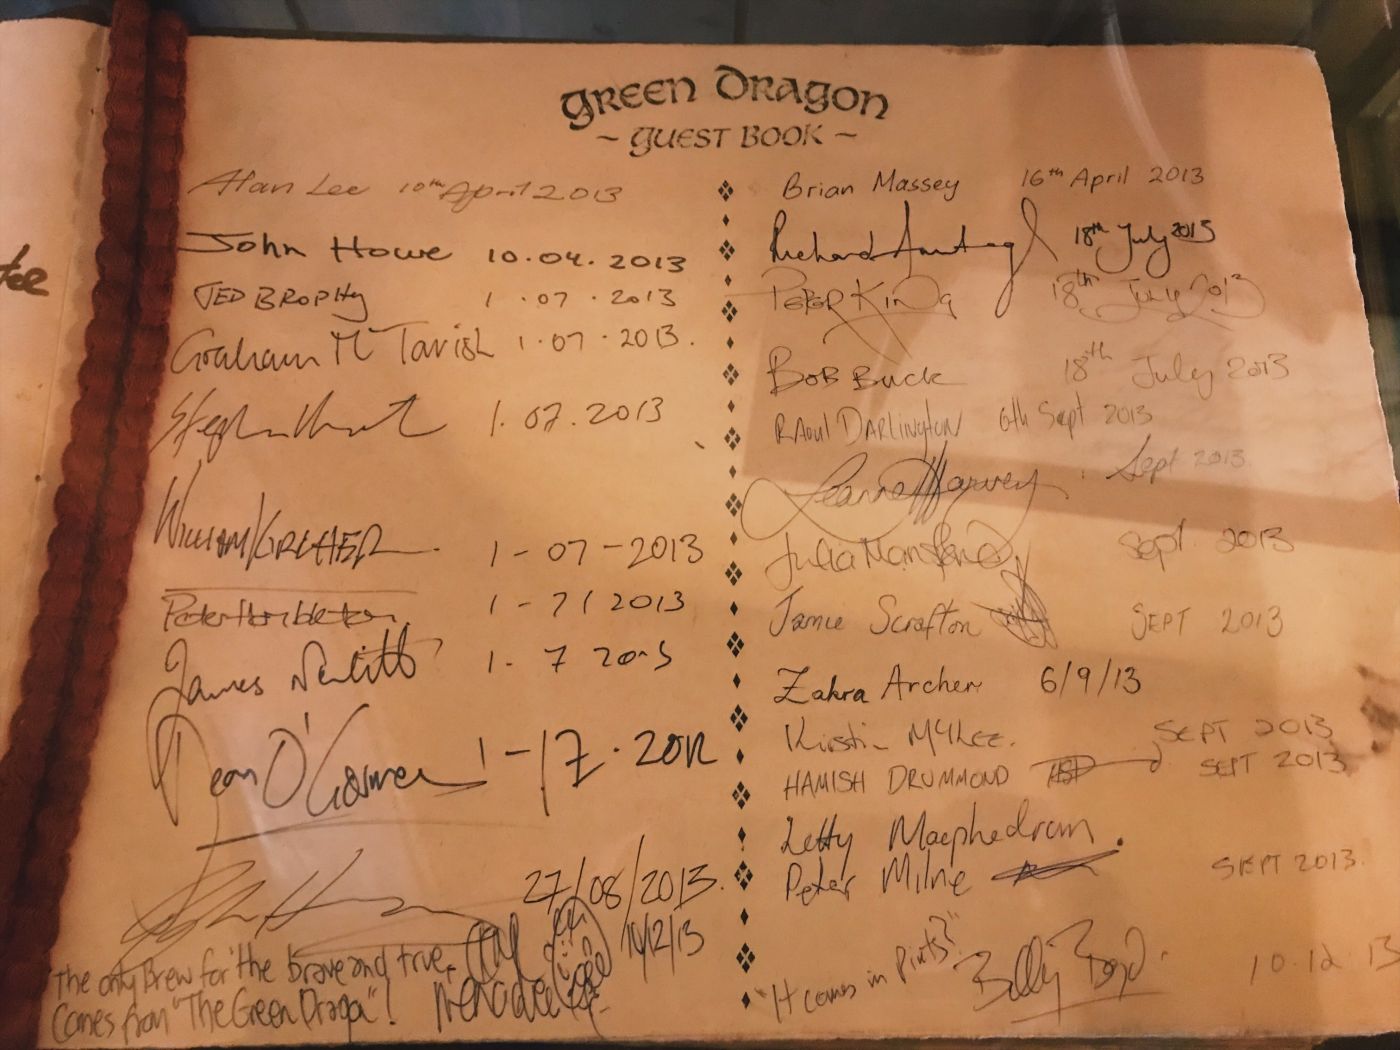 GREEN DRAGON
~ GUEST BOOK ~
Alan Lee 10th April 2013
John Howe 10.04.2013
JED BROPHY 1.07.2013
Graham McTavish 1.07.2013.
Stephen Hunt 1.07.2013
WILLIAM KIRCHER 1-07-2013
Peter Hambleton 1-7/2013
James Nesbitt 1-7 2013
Dean O'Gorman 1-17.2012
27/08/2013.
The only Brew for the brave and true,
Comes from "The Green Dragon"!
14/12/13
Brian Massey 16th April 2013
Richard Armitage 18th July 2013
PETER KING 18th July 2013
BOB BUCK 18th July 2013
RAOUL DARLINGTON 6th Sept 2013
Leanne Harvey Sept 2013
Julia Mansford Sept. 2013
Jamie Scrafton SEPT 2013
Zahra Archer 6/9/13
Kirstin SEPT 2013
HAMISH DRUMMOND SEPT 2013
Letty Macphedran.
Peter Milne SEPT 2013.
"It comes in Pints?" Billy Boyd. 10.12.13